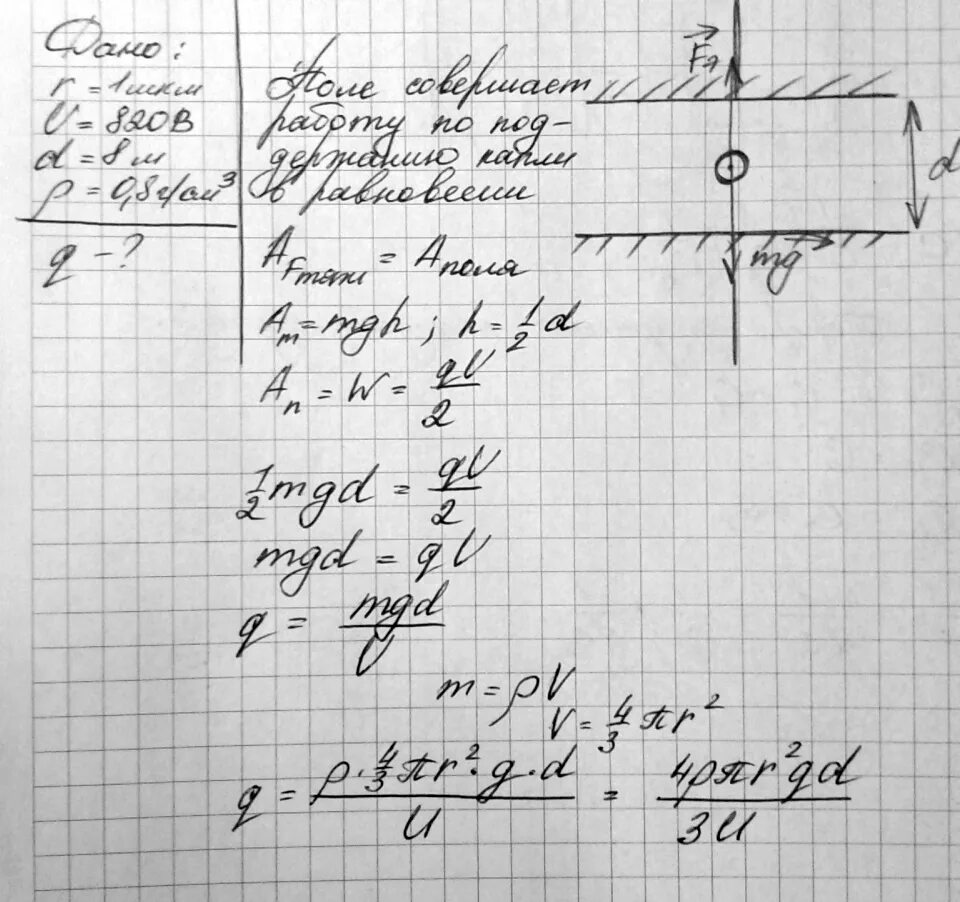 Дано:
r = 1 мкм
U = 820 В
d = 8 м
ρ = 0,8 г/см³
q - ?
Поле совершает
работу по под-
держанию капли
в равновесии
A_Fтяж = A_поля
A_m = mgh ; h = 1/2 d
A_п = W = qU/2
1/2 mgd = qU/2
mgd = qU
q = mgd/U
m = ρV
V = 4/3 πr²
q = ρ · 4/3 πr² · g · d / U = 4ρπr²gd / 3U
F_э
d
mg